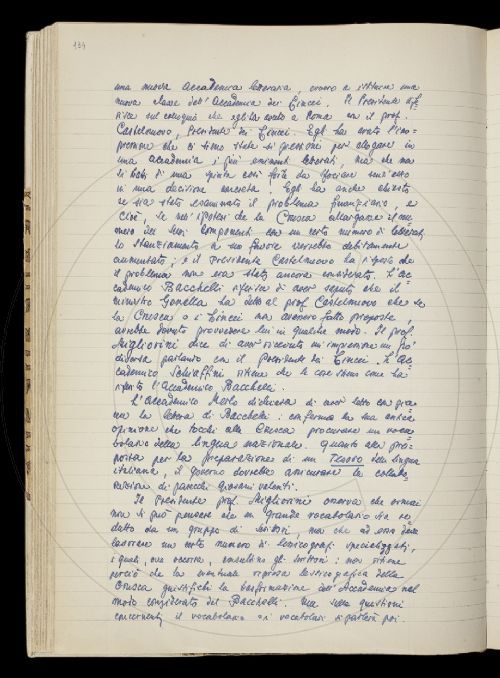 134
una nuova Accademia letteraria, ovvero a istituire una
nuova classe dell'Accademia dei Lincei. Il Presidente rife-
risce sul colloquio che egli ha avuto a Roma con il prof.
Castelnuovo, Presidente dei Lincei. Egli ha avuto l'im-
pressione che ci siano state pressioni per elegare in
una accademia i più eminenti letterati, ma che non
si tratti di una spinta così forte da sfociare senz'altro
in una decisione concreta. Egli ha anche chiesto
se sia stato esaminato il problema finanziario, e
cioè, se nell'ipotesi che la Crusca allargasse il nu-
mero dei suoi componenti con un certo numero di letterati,
lo stanziamento a suo favore verrebbe debitamente
aumentato; e il Presidente Castelnuovo ha risposto che
il problema non era stato ancora considerato. L'Ac-
cademico Bacchelli riferisce di aver saputo che il
ministro Gonella ha detto al prof. Castelnuovo che se
la Crusca o i Lincei non avessero fatto proposte,
avrebbe dovuto provvedere lui in qualche modo. Il prof.
Migliorini dice di aver ricevuto un'impressione un po'
diversa parlando con il Presidente dei Lincei. L'Ac-
cademico Schiaffini ritiene che le cose stiano come ha
riferito l'Accademico Bacchelli.
L'Accademico Merlo dichiara di aver letto con gioia
la lettera di Bacchelli: conferma la sua antica
opinione che tocchi alla Crusca procurare un voca-
bolario della lingua nazionale. Quanto alla pro-
posta per la preparazione di un Tesoro della lingua
italiana, il governo dovrebbe assicurare la collabo-
razione di parecchi giovani valenti.
Il Presidente prof. Migliorini osserva che ormai
non si può pensare che un grande vocabolario sia re-
datto da un gruppo di scrittori, ma che ad esso deve
lavorare un certo numero di lessicografi specializzati,
i quali, ove occorra, consultino gli scrittori; non ritiene
perciò che la eventuale ripresa lessicografica della
Crusca giustifichi la trasformazione dell'Accademia nel
modo considerato dal Bacchelli. Ma sulle questioni
concernenti il vocabolario o i vocabolari si parlerà poi.